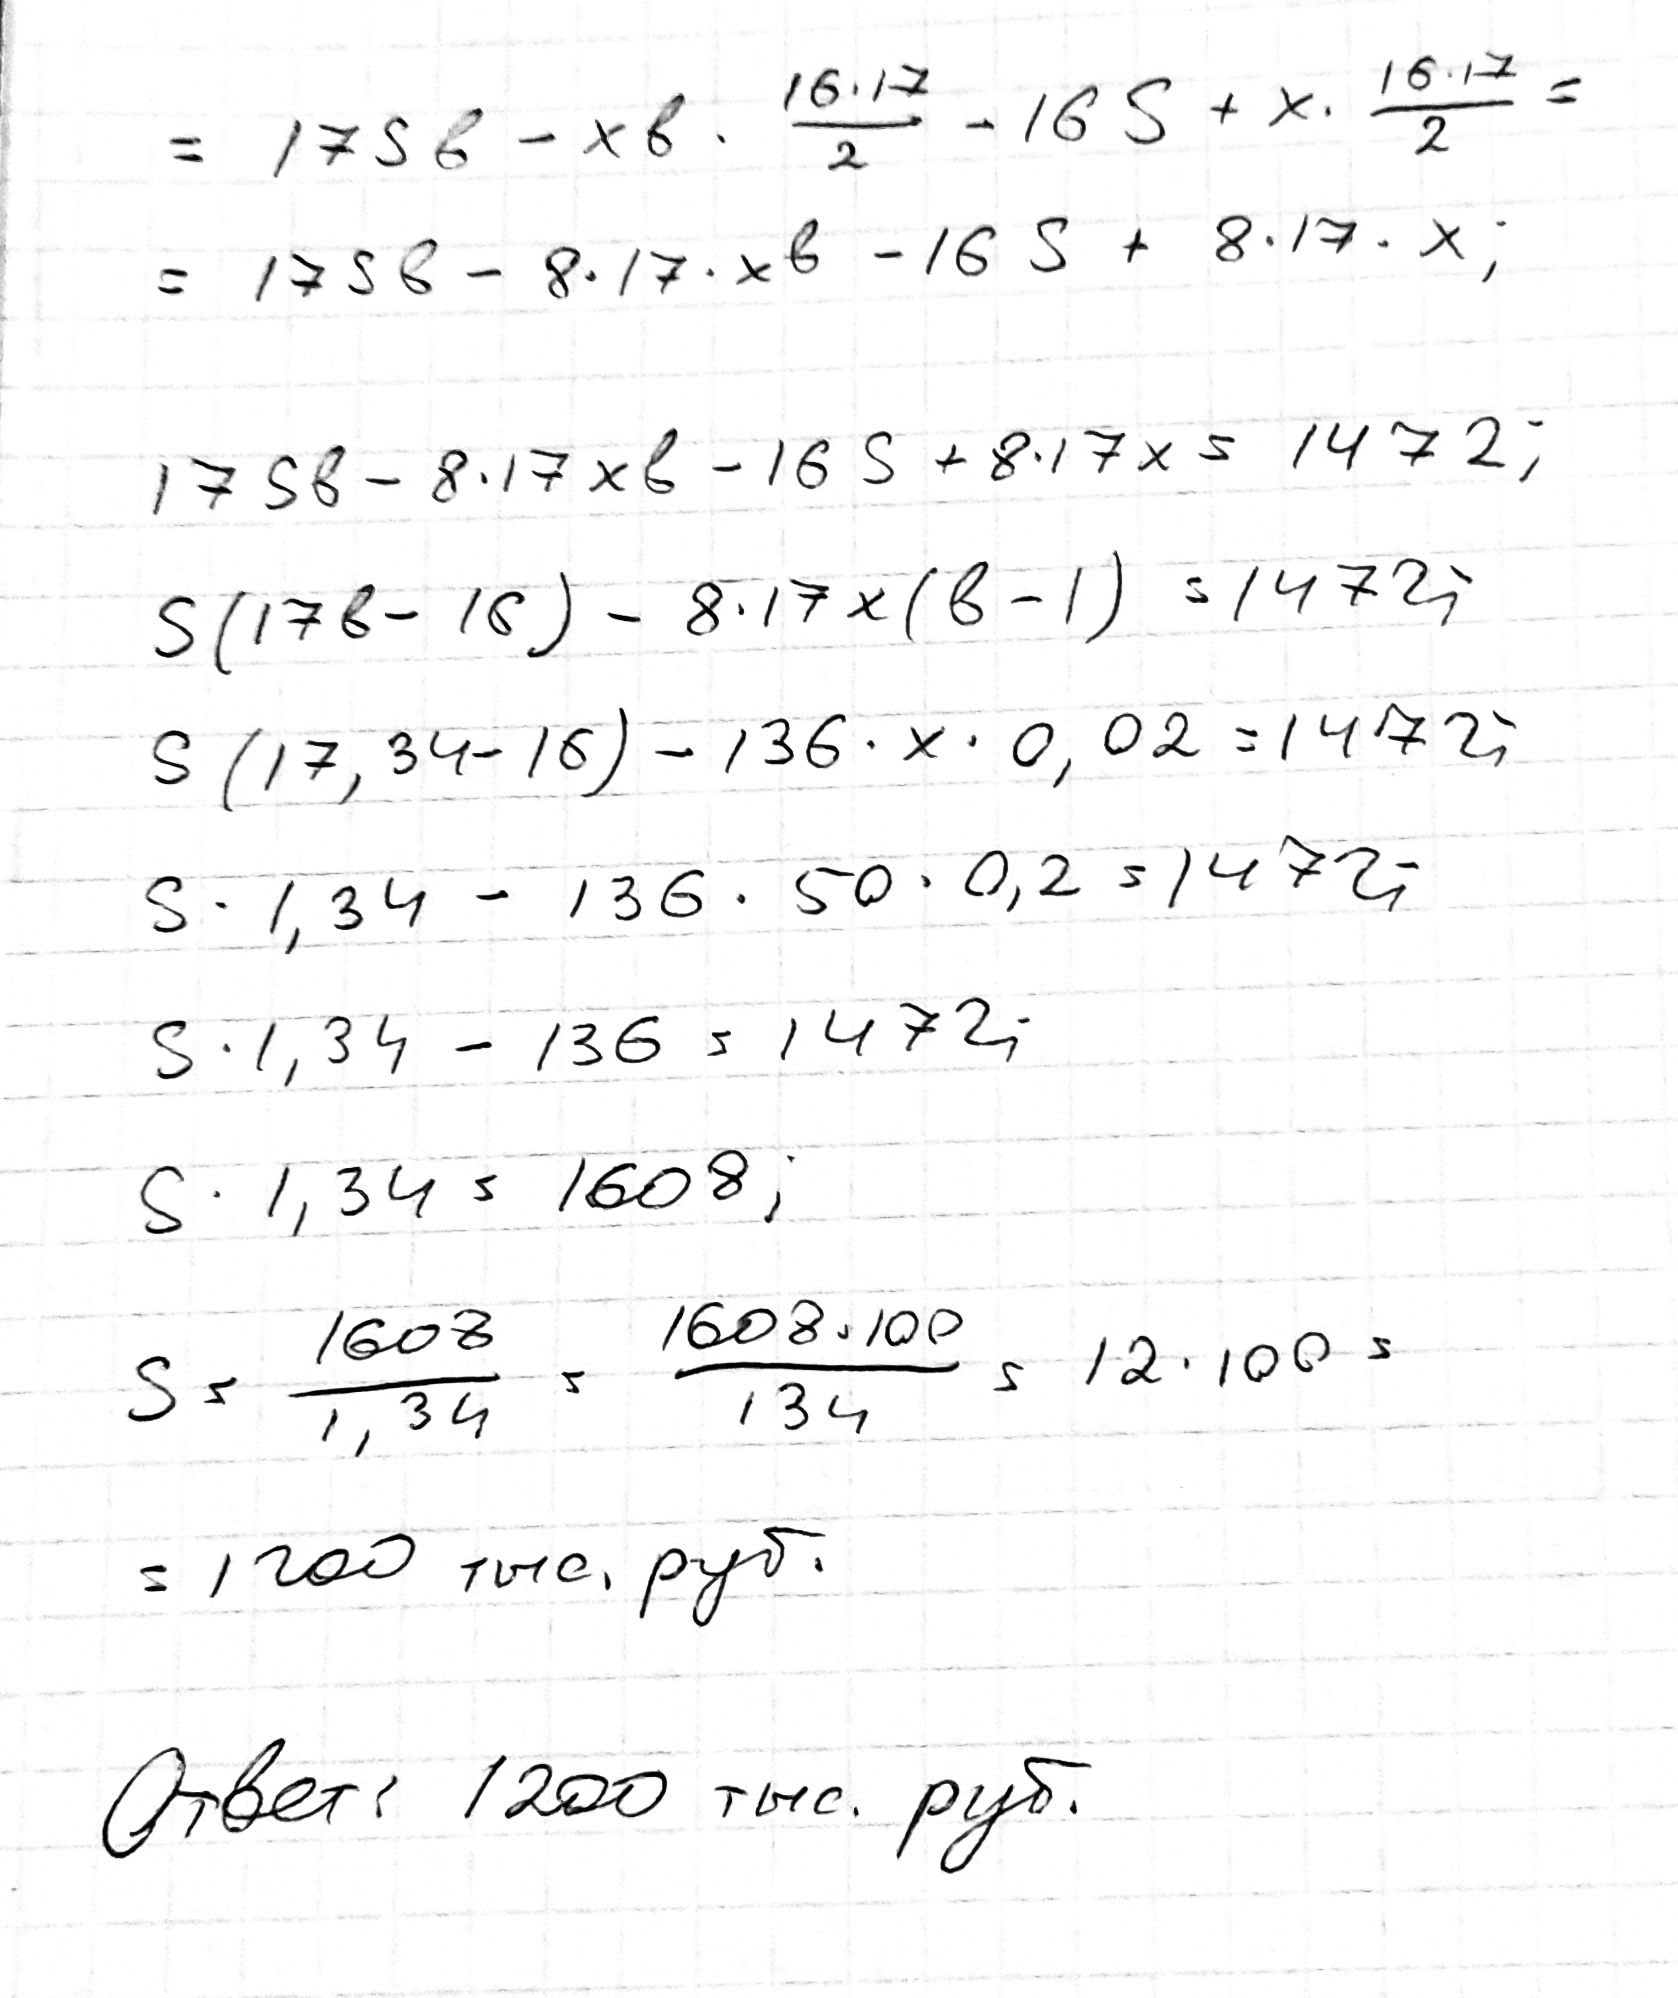 = 17Sв - xв · 16·17/2 - 16S + x · 16·17/2 =
= 17Sв - 8·17·xв - 16S + 8·17·x;
17Sв - 8·17xв - 16S + 8·17x = 1472;
S(17в - 16) - 8·17x(в - 1) = 1472;
S(17,34 - 16) - 136·x·0,02 = 1472;
S·1,34 - 136·50·0,2 = 1472;
S·1,34 - 136 = 1472;
S·1,34 = 1608;
S = 1608/1,34 = 1608·100/134 = 12·100 =
= 1200 тыс. руб.
Ответ: 1200 тыс. руб.